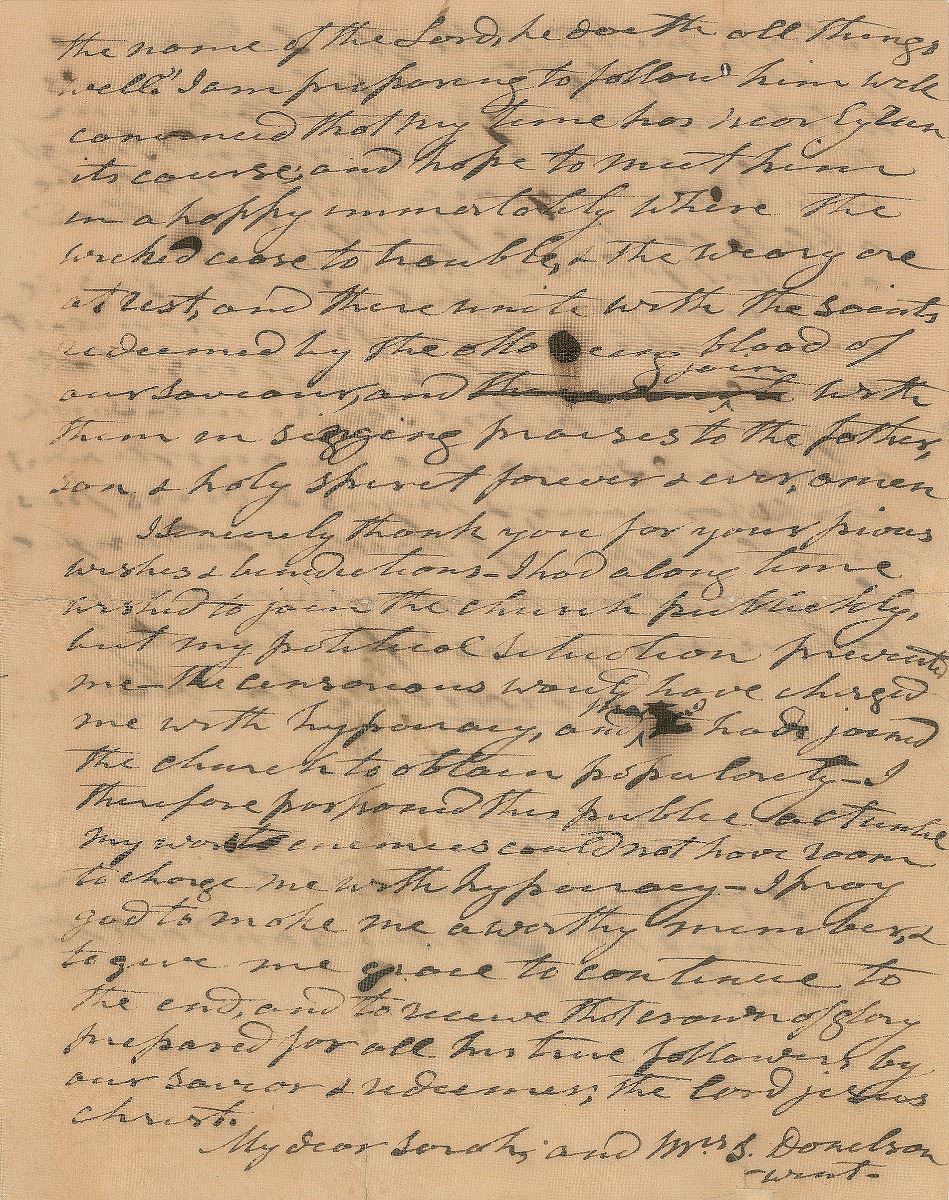 the name of the Lord, he doeth all things
well." I am preparing to follow him well
convinced that my time has near by run
its course, and hope to meet him
in a happy immortality where the
wicked cease to trouble, & the weary are
at rest, and there unite with the saints
redeemed by the blood of
our saviour, and join with
them in singing praises to the father,
son, & holy spirit forever & ever, amen
I sincerely thank you for your pious
wishes & benedictions - I had along time
wished to join the church publickly,
but my political situation prevented
me - the censorious would have charged
me with hypocracy, and had joined
the church to obtain popularity - I
therefore posponed this public act untill
my worst enemies could not have room
to charge me with hypocracy - I pray
god to make me a worthy member, &
to give me grace to continue to
the end, and to receive that crown of glory
prepared for all his true followers by
our savior & redeemer, the lord jesus
christ.
My dear Sarah, and Mrs S. Donelson
-went-